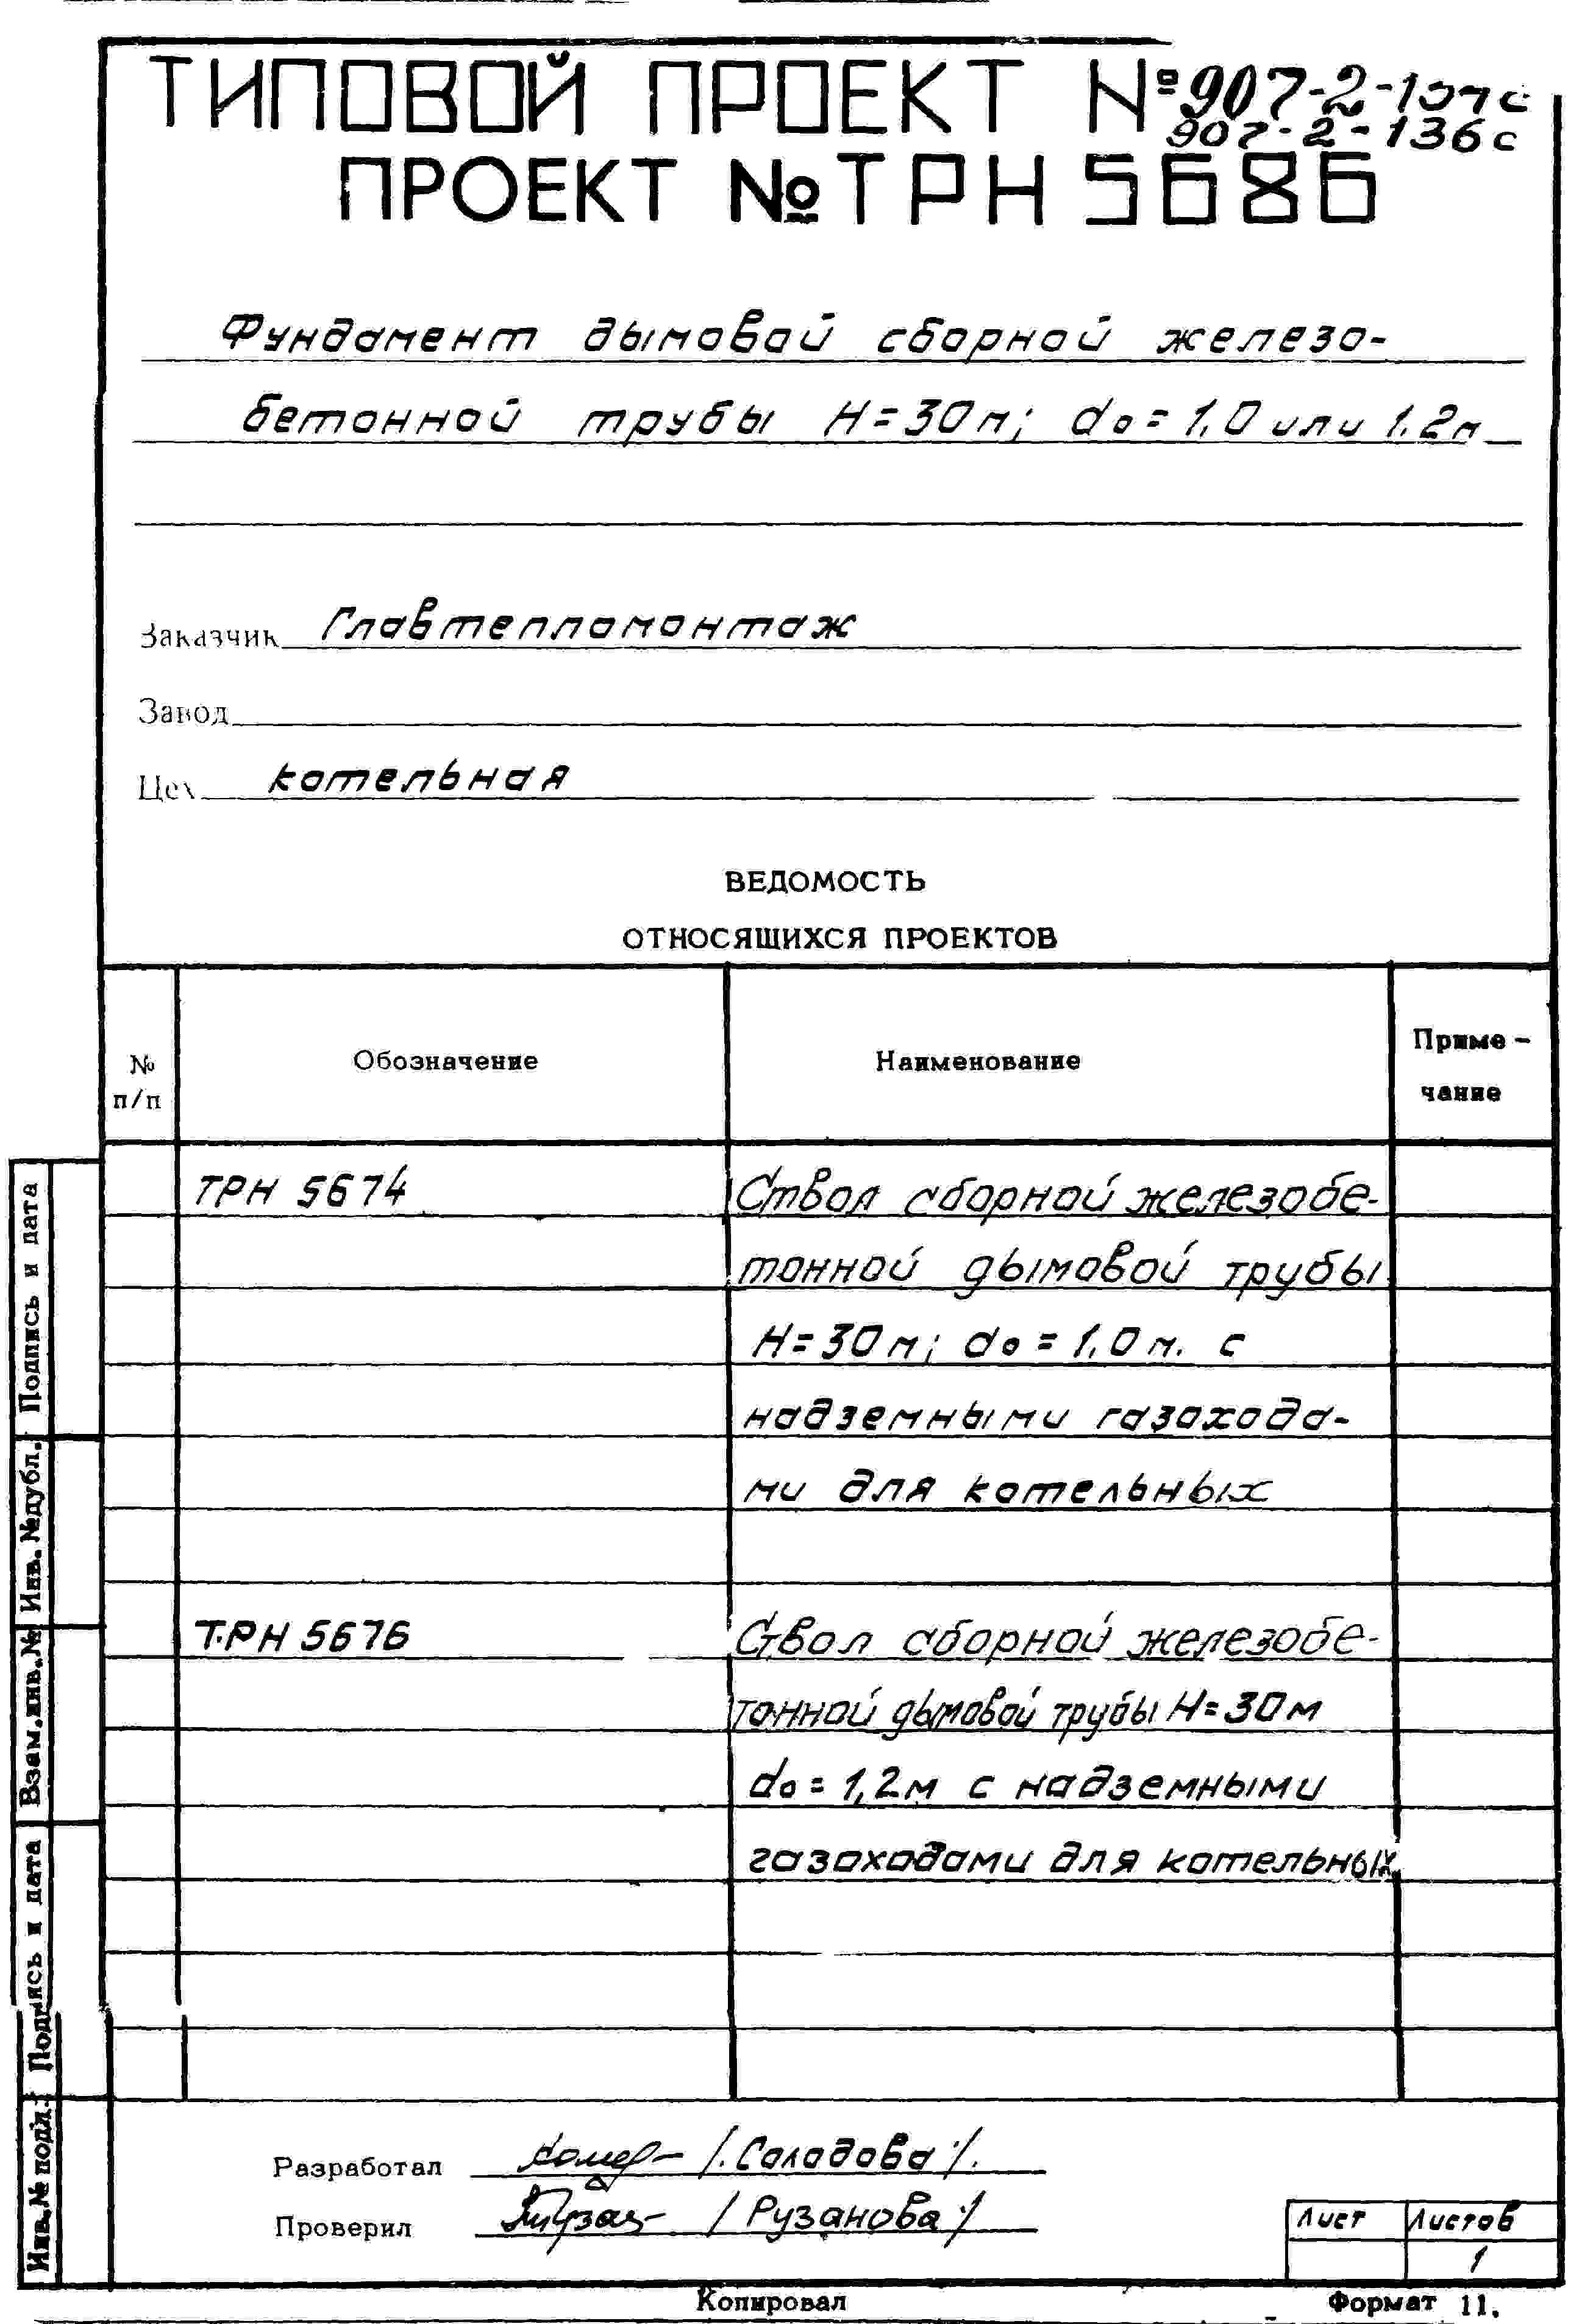 ТИПОВОЙ ПРОЕКТ №907-2-
907-2-136с
ПРОЕКТ №ТРН 5686
Фундамент дымовой сборной железо-
бетонной трубы Н=30м; do=1,0 или 1.2м
Заказчик Главтепломонтаж
Завод
Цех котельная
ВЕДОМОСТЬ
ОТНОСЯЩИХСЯ ПРОЕКТОВ
№ п/п
Обозначение
Наименование
Приме-
чание
ТРН 5674
Ствол сборной железобе-
тонной дымовой трубы
Н=30м; do=1,0м. с
надземными газохода-
ми для котельных
ТРН 5676
Ствол сборной железобе-
тонной дымовой трубы Н=30м
do=1,2м с надземными
газоходами для котельных
Подпись и дата
Инв.№дубл.
Взам.инв.№
Подпись и дата
Инв.№ подл.
Разработал /Соладова/.
Проверил /Рузанова/
Лист Листов
1
Копировал
Формат 11.